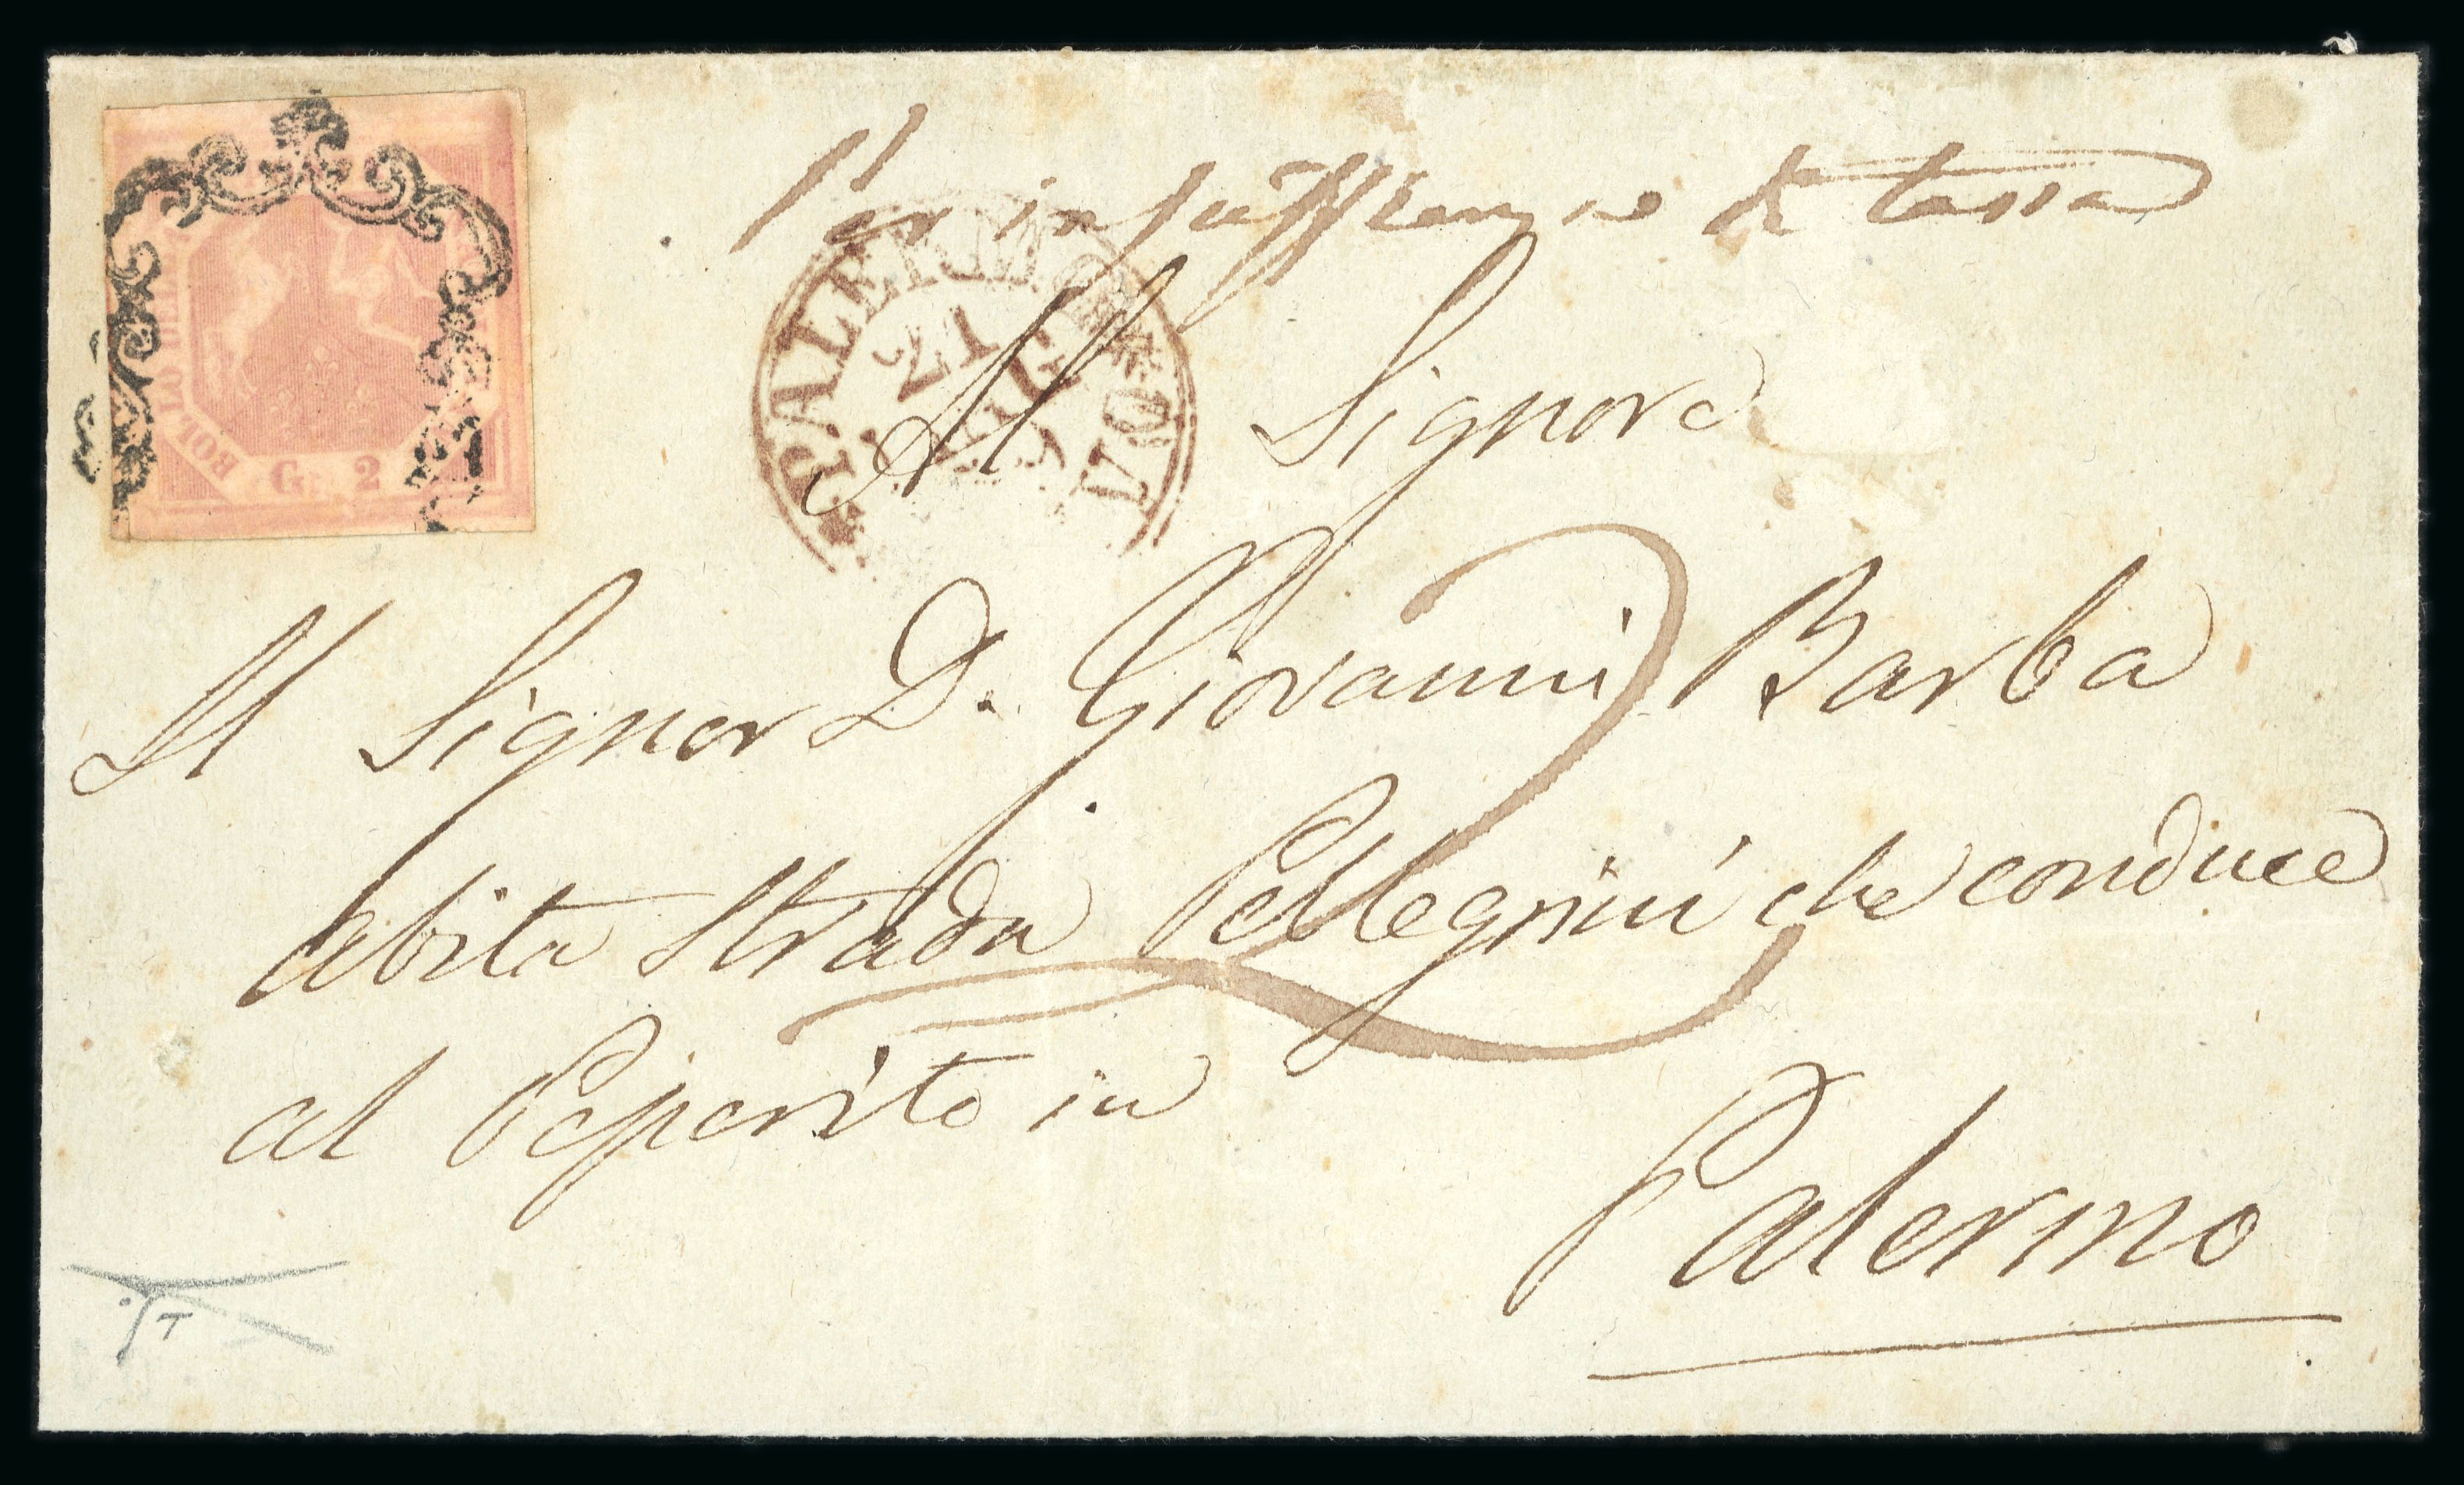 Per insufficienza di tassa
BOLLO DELLA
G. 2
PALERMO
21
Al Signore
Al Signor D. Giovanni Barba
abita Strada Pellegrini che conduce
al Peperito in
Palermo
2